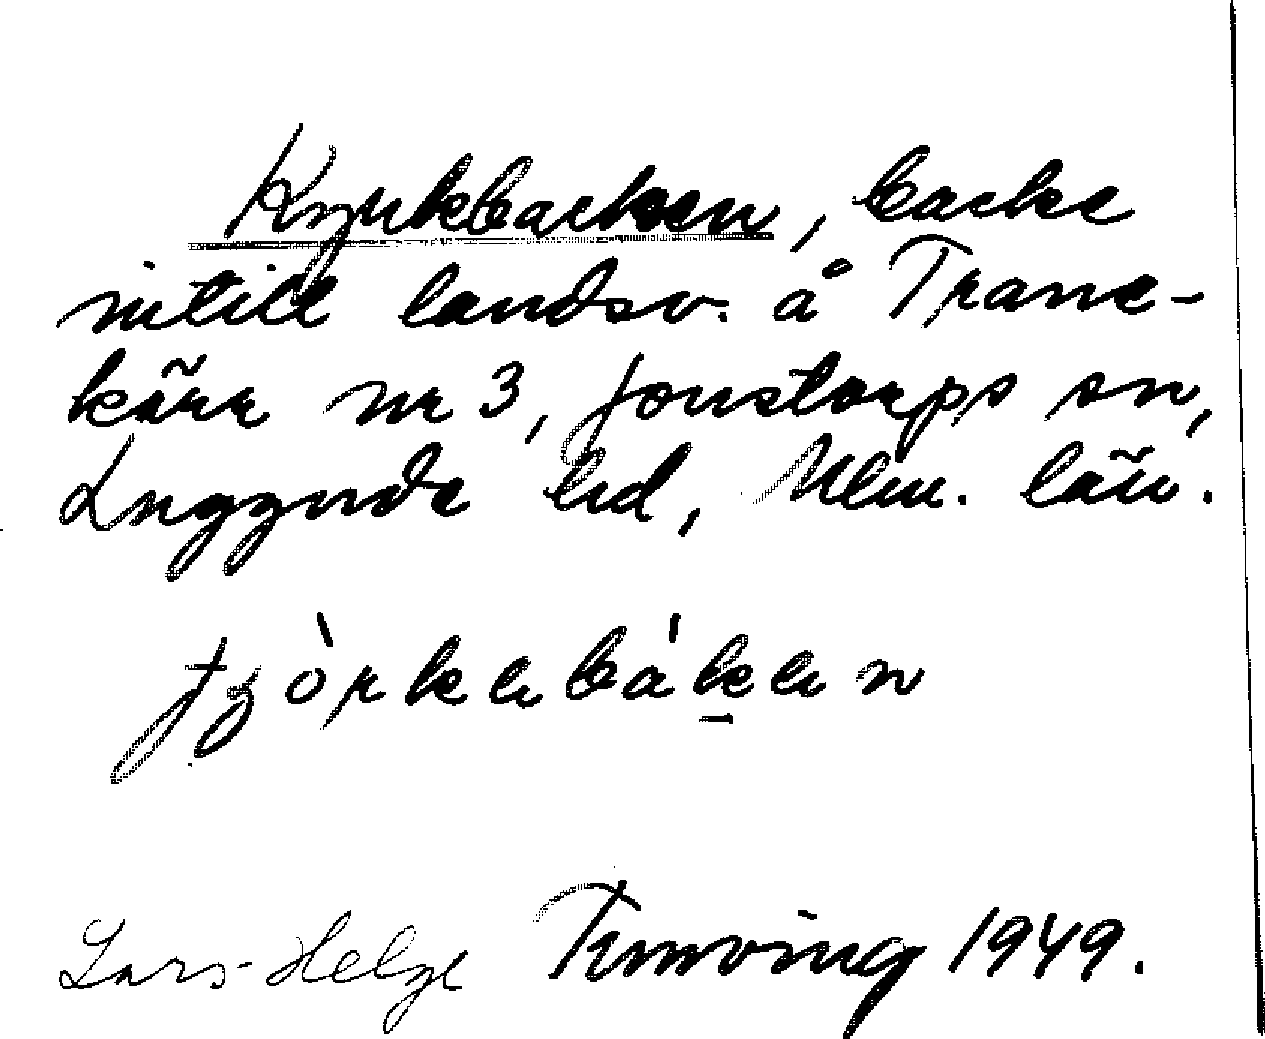 Kyrkbacken, backe
intill landsv. å Trane-
kärr nr 3, Jonstorps sn,
Luggude hd, Mlm. län.
Lars-Helge 1949.